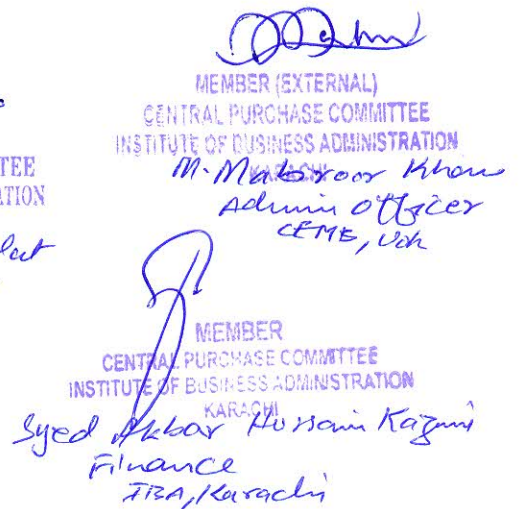 MEMBER (EXTERNAL)
CENTRAL PURCHASE COMMITTEE
INSTITUTE OF BUSINESS ADMINISTRATION
KARACHI
M. Mabroor Khan
Admin Officer
CEME, UoK
TEE
ATION
MEMBER
CENTRAL PURCHASE COMMITTEE
INSTITUTE OF BUSINESS ADMINISTRATION
KARACHI
Syed Akbar Hussain Kazmi
Finance
IBA, Karachi